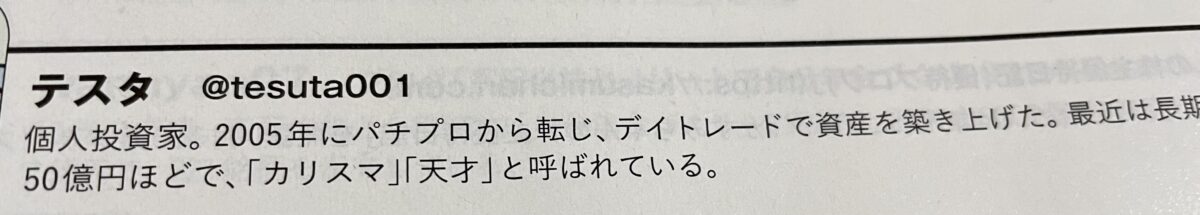 テスタ @tesuta001
個人投資家。2005年にパチプロから転じ、デイトレードで資産を築き上げた。最近は長期
50億円ほどで、「カリスマ」「天才」と呼ばれている。